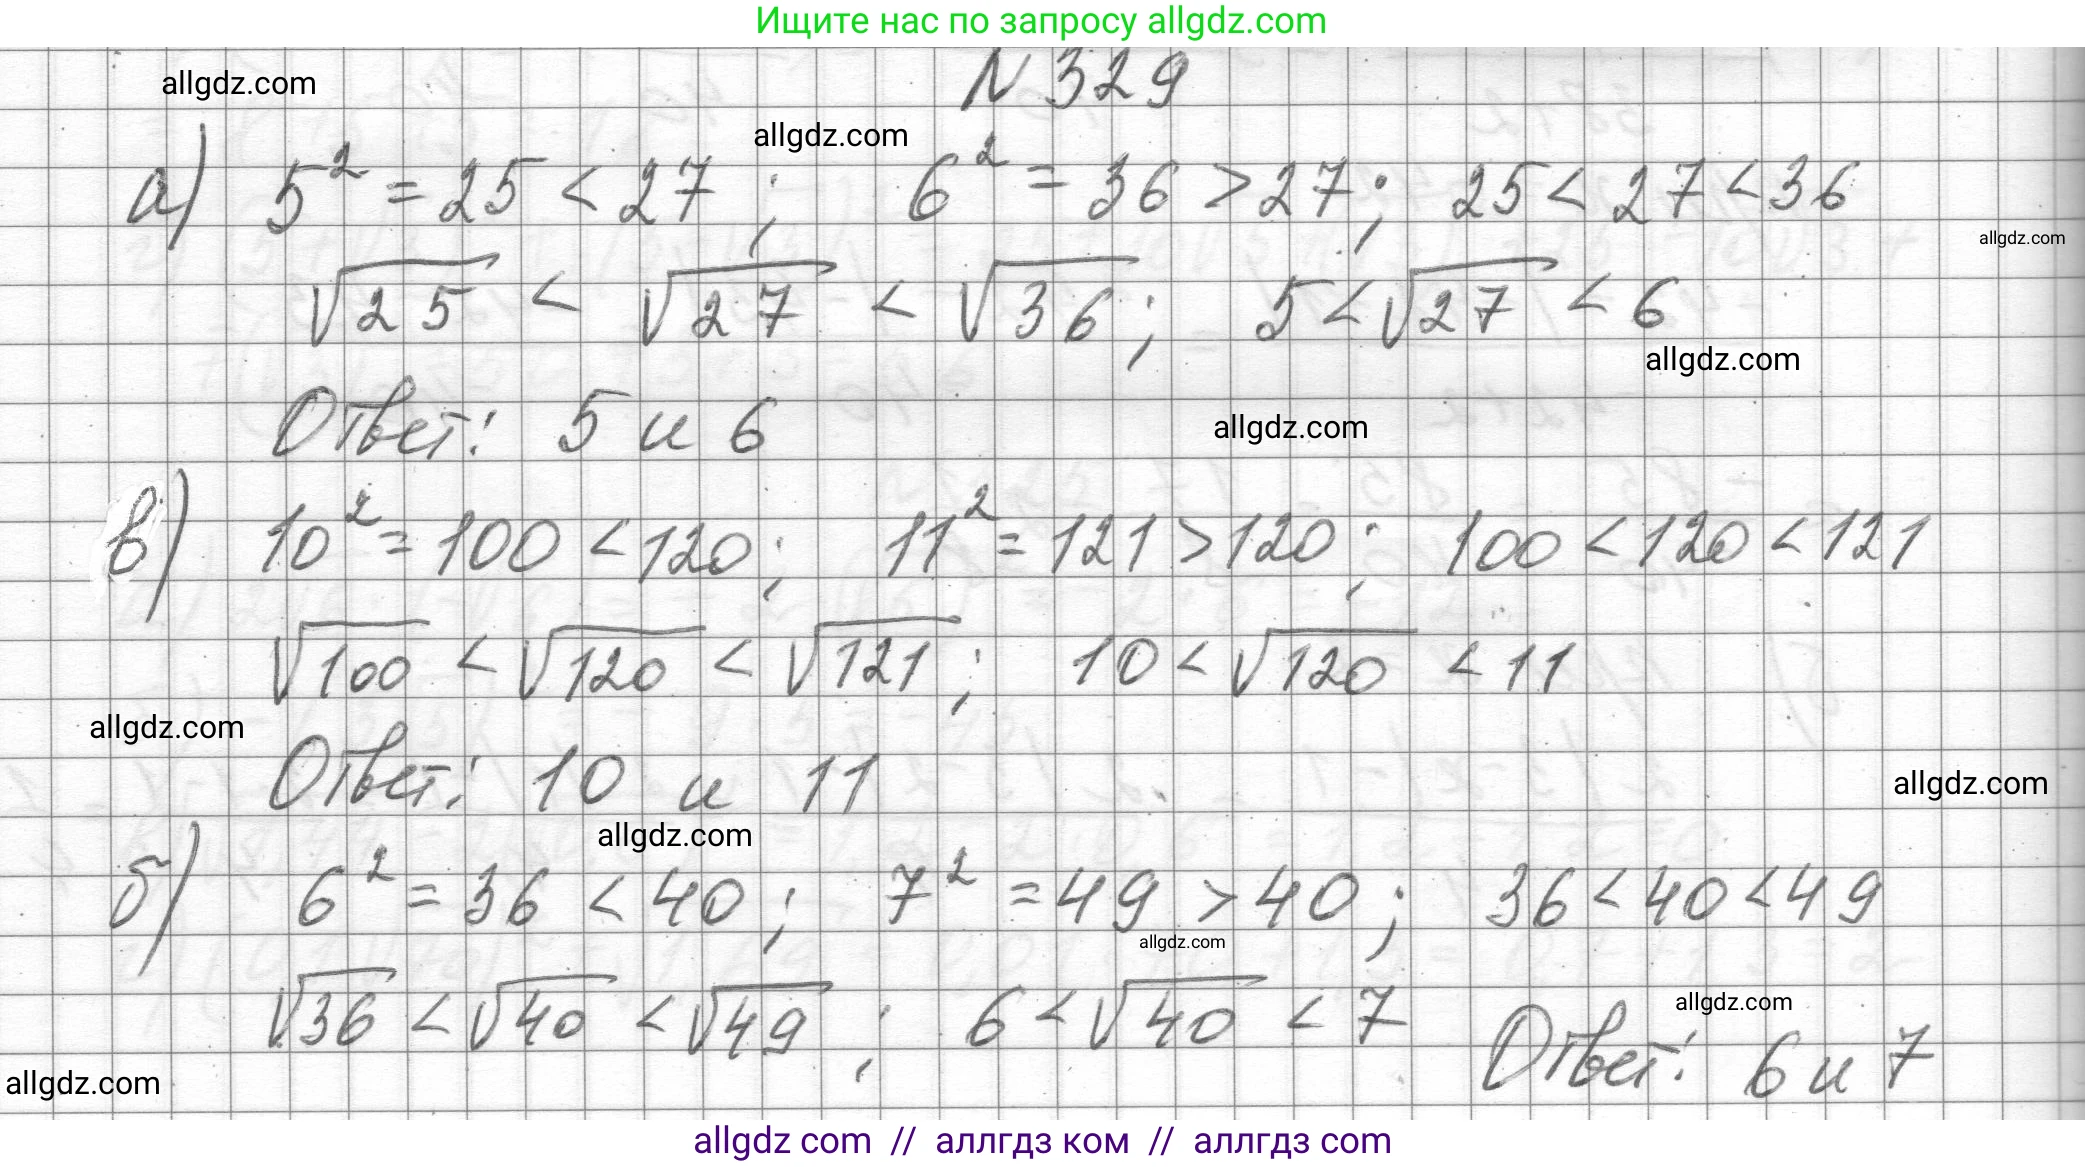 Ищите нас по запросу allgdz.com
N 329
allgdz.com
allgdz.com
а) 5² = 25 < 27 ; 6² = 36 > 27 ; 25 < 27 < 36
allgdz.com
√25 < √27 < √36 ; 5 < √27 < 6
allgdz.com
Ответ: 5 и 6
allgdz.com
в) 10² = 100 < 120 ; 11² = 121 > 120 ; 100 < 120 < 121
√100 < √120 < √121 ; 10 < √120 < 11
allgdz.com
Ответ: 10 и 11
allgdz.com
allgdz.com
б) 6² = 36 < 40 ; 7² = 49 > 40 ; 36 < 40 < 49
allgdz.com
√36 < √40 < √49 ; 6 < √40 < 7
allgdz.com
Ответ: 6 и 7
allgdz.com
allgdz com // аллгдз ком // аллгдз com